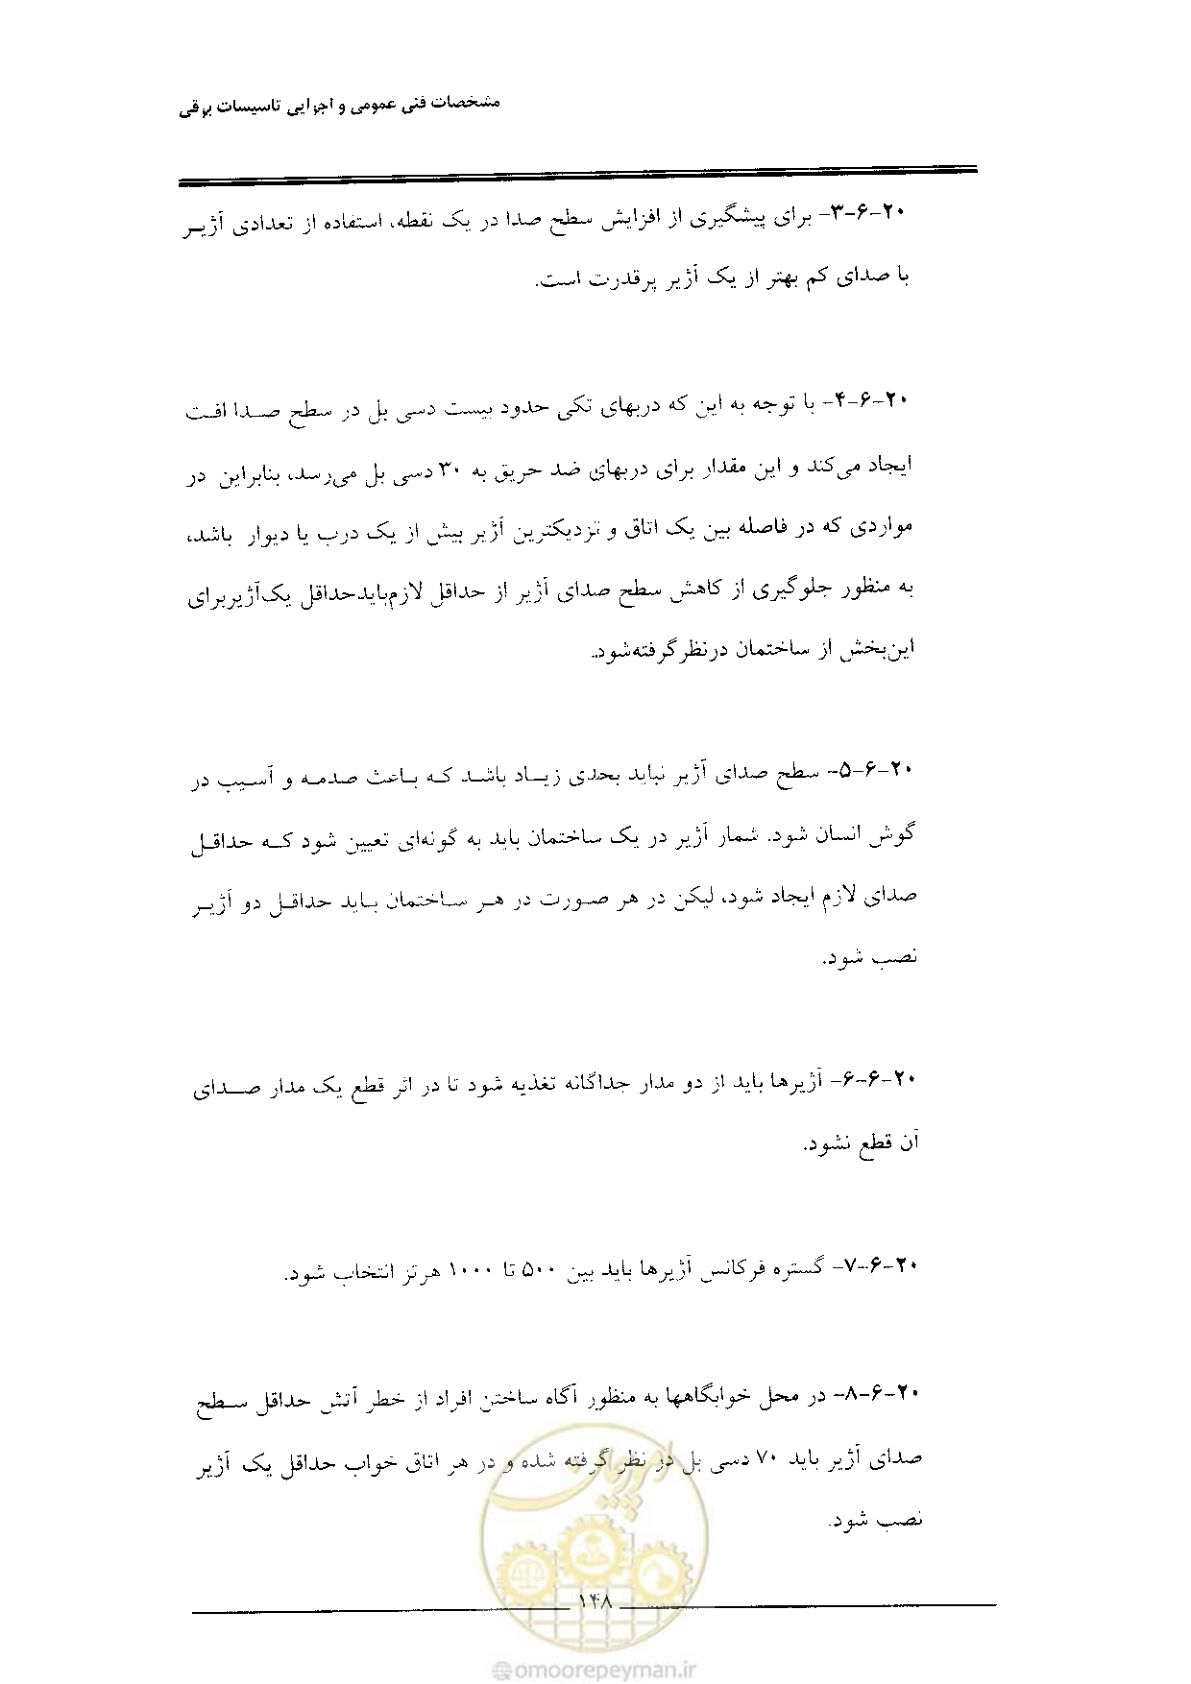 مشخصات فنی عمومی و اجرایی تاسیسات برقی
۲۰-۶-۳- برای پیشگیری از افزایش سطح صدا در یک نقطه، استفاده از تعدادی آژیر
با صدای کم بهتر از یک آژیر پرقدرت است.
۲۰-۶-۴- با توجه به این که دربهای تکی حدود بیست دسی بل در سطح صدا افت
ایجاد می‌کند و این مقدار برای دربهای ضد حریق به ۳۰ دسی بل می‌رسد، بنابراین در
مواردی که در فاصله بین یک اتاق و نزدیکترین آژیر بیش از یک درب یا دیوار باشد،
به منظور جلوگیری از کاهش سطح صدای آژیر از حداقل لازم‌باید‌حداقل یک‌آژیر‌برای
این‌بخش از ساختمان در‌نظر‌گرفته‌شود.
۲۰-۶-۵- سطح صدای آژیر نباید بحدی زیاد باشد که باعث صدمه و آسیب در
گوش انسان شود. شمار آژیر در یک ساختمان باید به گونه‌ای تعیین شود که حداقل
صدای لازم ایجاد شود، لیکن در هر صورت در هر ساختمان باید حداقل دو آژیر
نصب شود.
۲۰-۶-۶- آژیرها باید از دو مدار جداگانه تغذیه شود تا در اثر قطع یک مدار صدای
آن قطع نشود.
۲۰-۶-۷- گستره فرکانس آژیرها باید بین ۵۰۰ تا ۱۰۰۰ هرتز انتخاب شود.
۲۰-۶-۸- در محل خوابگاهها به منظور آگاه ساختن افراد از خطر آتش حداقل سطح
صدای آژیر باید ۷۰ دسی بل در نظر گرفته شده و در هر اتاق خواب حداقل یک آژیر
نصب شود.
امور پیمان
۱۴۸
@omoorepeyman.ir